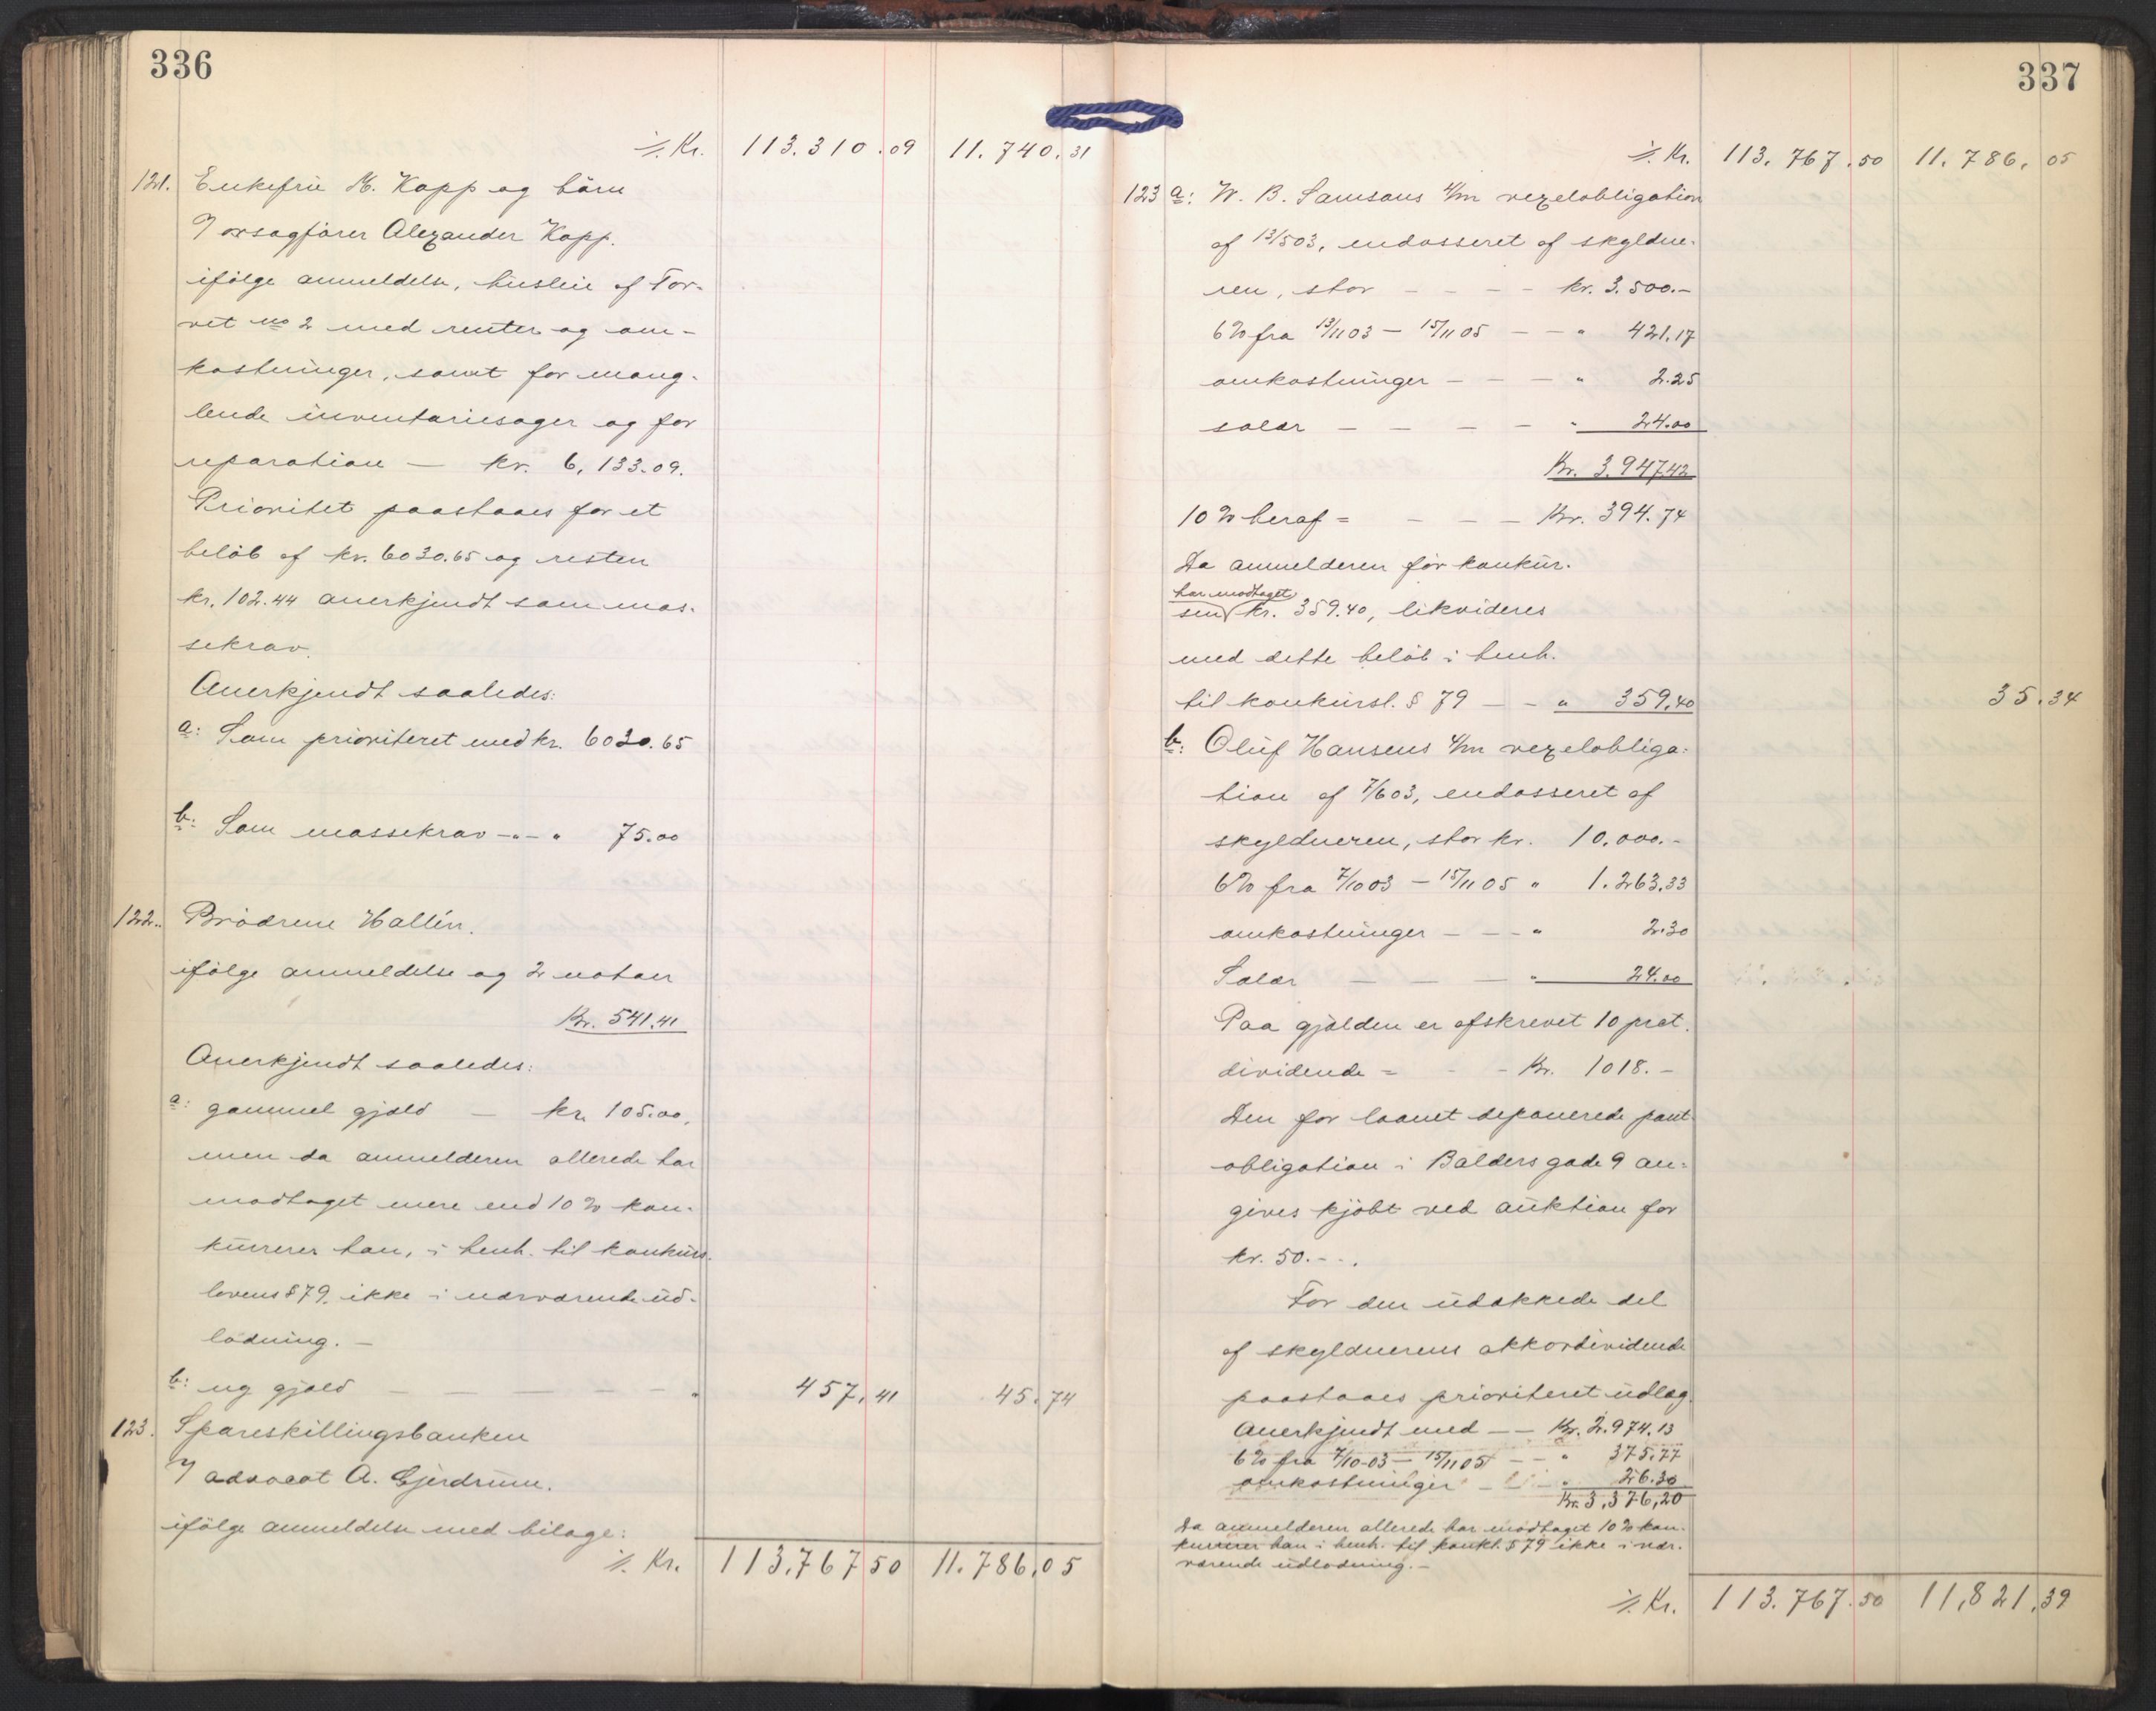 336
⁒ Kr. 113.310.09 11.740.31
121. Enkefru M. Kopp og börn
v/ oxsagförer Alexander Kopp.
ifölge anmeldelse, husleie af Tor-
vet no 2 med renter og om-
kostninger, samt for mang-
lende inventariesager og for
reparation — kr. 6,133.09.
Prioritet paastaaes for et
belöb af kr. 6030.65 og resten
kr. 102.44 anerkjendt som mas-
sekrav.
Anerkjendt saaledes:
a: Som prioriteret med kr. 6030.65
b: Som massekrav -"- " 75.00
122. Brödrene Hallén.
ifölge anmeldelse og 2 notaer
Kr. 541.41
Anerkjendt saaledes:
a: gammel gjæld — kr. 105.00,
men da anmelderen allerede har
modtaget mere end 10 % kon-
kurrerer han, i henh. til konkurs-
lovens § 79, ikke i nærværende ud-
lodning. —
b: ny gjæld — — — — — " 457,41 45.74
123. Spareskillingsbanken
v/ advocat A. Gjerdrum.
ifölge anmeldelse med bilage:
⁒ Kr. 113.767 50 11.786.05
337
⁒ Kr. 113.767.50 11.786.05
123 a: W. B. Samsons 4/m vexelobligation
af 13/5 03, endosseret af skyldne-
ren, stor - - - - kr. 3.500.-
6 % fra 13/11 03 — 15/11 05 — — " 421.17
omkostninger — — — " 2.25
salær — — — — " 24.00
Kr. 3.947.42
10 % heraf = - — — Kr. 394.74
Da anmelderen för konkur-
har modtaget
sen kr. 359.40, likvideres
med dette belöb i henh.
til konkursl. § 79 — - " 359,40 35.34
b: Oluf Hansens 4/m vexelobliga-
tion af 7/6 03, endosseret af
skyldneren, stor kr. 10.000.-
6 % fra 7/10 03 — 15/11 05 " 1.263.33
omkostninger — — - " 2.30
Salær — — — " 24.00
Paa gjælden er afskrevet 10 prct.
dividende = - - Kr. 1018.-
Den for laanet deponerede pant-
obligation i Baldersgade 9 an-
gives kjöbt ved auktion for
kr. 50.--.
For den udækkede del
af skyldnerens akkordividende
paastaaes prioriteret udlæg.
Anerkjendt med — — Kr. 2.974.13
6 % fra 7/10-03 — 15/11 05 — — " 375.77
omkostninger — " 26.30
Kr. 3,376,20
Da anmelderen allerede har modtaget 10 % kon-
kurrerer han i henh. til konkl. § 79 ikke i nær-
værende udlodning.—
⁒ Kr. 113.767.50 11,821,39